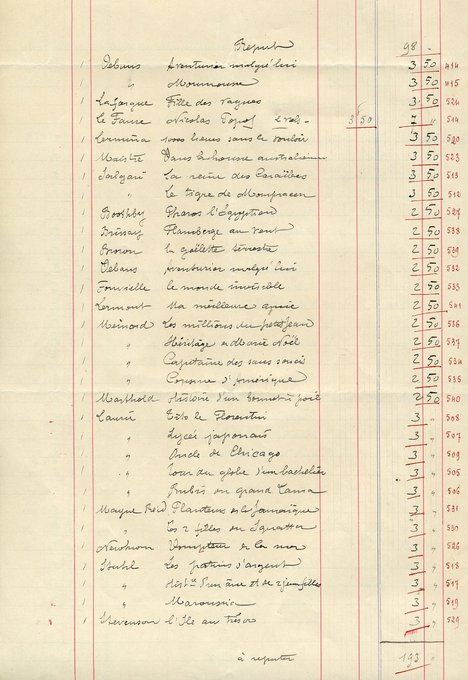 Report 98 "
1 Debans Aventurier malgré lui 3 50 414
1 " Moumousse 3 50 415
1 Lafargue Fille des vagues 3 50 524
1 Le Faure Nicolas 2 vols. 3 50 7 " 514
1 Lermina 1000 lieues sans le vouloir 3 50 520
1 Maistre Dans la brousse australienne 3 50 523
1 Salgari La reine des Caraïbes 3 50 513
1 " Le tigre de Mompracem 3 50 512
1 Boothby Pharos l'Égyptien 2 50 527
1 Brissay Flamberge au vent 2 50 538
1 Brown la goëlette terrestre 2 50 539
1 Debans Aventurier malgré lui 2 50 532
1 Fonvielle le monde invisible 2 50 533
1 Lermont Ma meilleure amie 2 50 541
1 Meinord Les millions du petit Jean 2 50 536
1 " Héritage de Marie Noël 2 50 537
1 " Capitaine des sans souci 2 50 534
1 " Couronne d'Amérique 2 50 535
1 Marthold Histoire d'un bonnet à poil 2 50 540
1 Laurie Tito le Florentin 3 " 508
1 " Lycée japonais 3 " 507
1 " Oncle de Chicago 3 " 509
1 " Tour du globe d'un bachelier 3 " 505
1 " Rubis du grand Lama 3 " 506
1 Mayne Reid Planteurs de la Jamaïque 3 " 531
1 " Les 2 filles du Squatter 3 " 530
1 Dompteur de la mer 3 " 526
1 Stahl Les patins d'argent 3 " 518
1 " Hist.re d'un âne et de 2 jeunes filles 3 " 517
1 " Maroussia 3 " 519
1 Stevenson l'Ile au trésor 3 " 529
à reporter 193 "